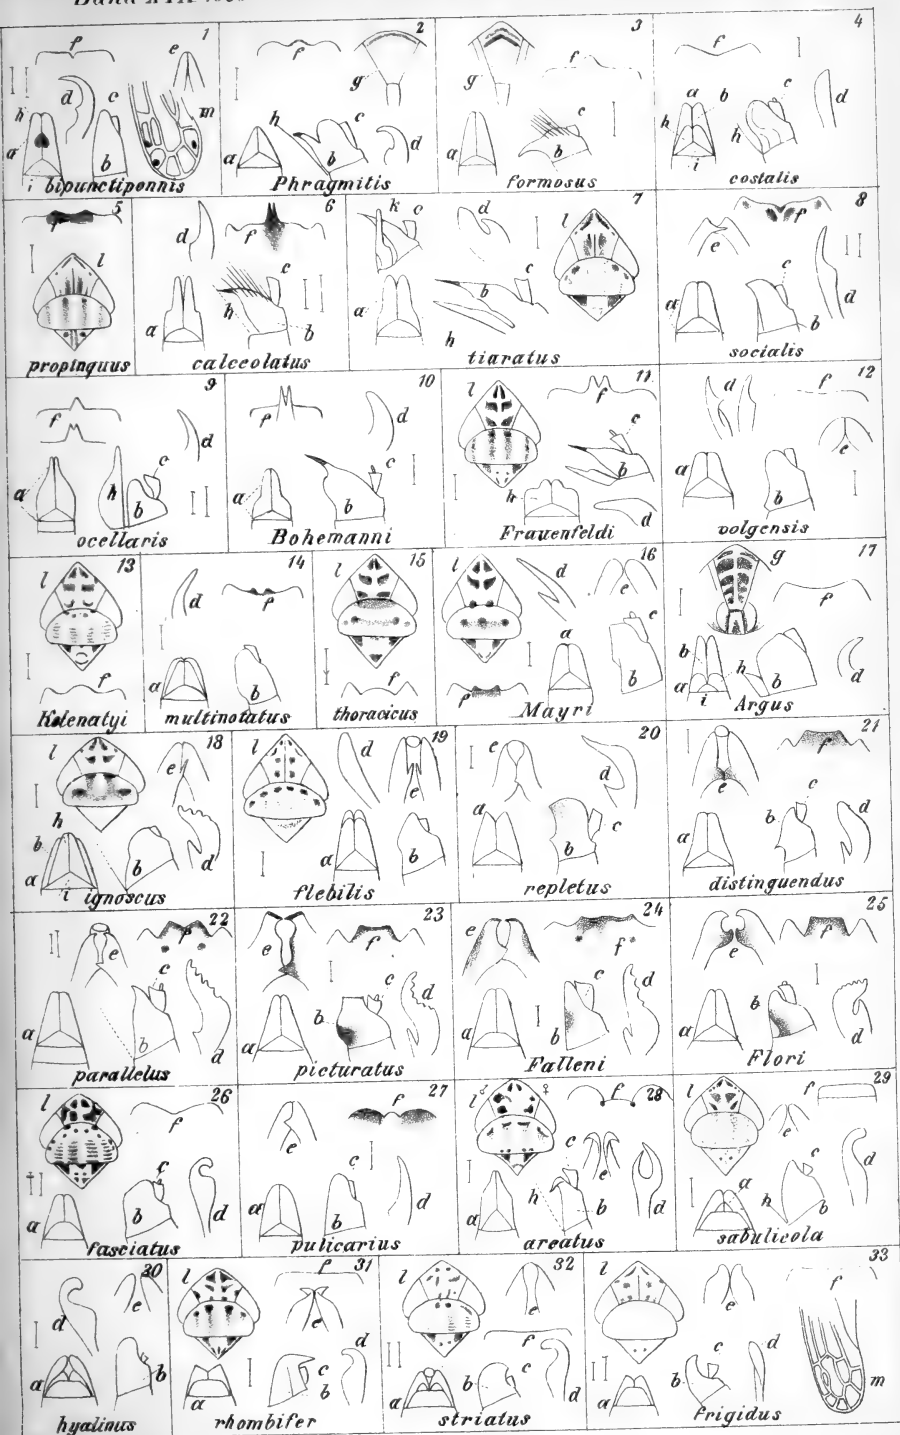 1 f e d c h m a b i bipunctipennis
2 f g h c a b d Phragmitis
3 g f a c b formosus
4 f a b h c d h i costalis
5 f l propinquus
6 d f c h a b calceolatus
7 k c d l c b a h tiaratus
8 f e c a b d socialis
9 f d c a h b ocellaris
10 f d c a b Bohemanni
11 l f c b h d Frauenfeldi
12 d f e a b volgensis
13 l f Kolenatyi
14 d f a b multinotatus
15 l f thoracicus
16 l d e c a b f Mayri
17 g f b h a i b d Argus
18 l e h b a i b d ignoscus
19 l d e a b flebilis
20 e d a c b repletus
21 f e c b d a distinguendus
22 f e c a b d parallelus
23 e f c d b a picturatus
24 e f c d a b Falleni
25 e f b a d Flori
26 l f c a b d fasciatus
27 f e c a b d pulicarius
28 l ♂ ♀ f c e h b a d areatus
29 l f e d a h b sabulicola
30 e d a b hyalinus
31 l f e d c a b rhombifer
32 l e f b c a d striatus
33 l e f c d b a m frigidus